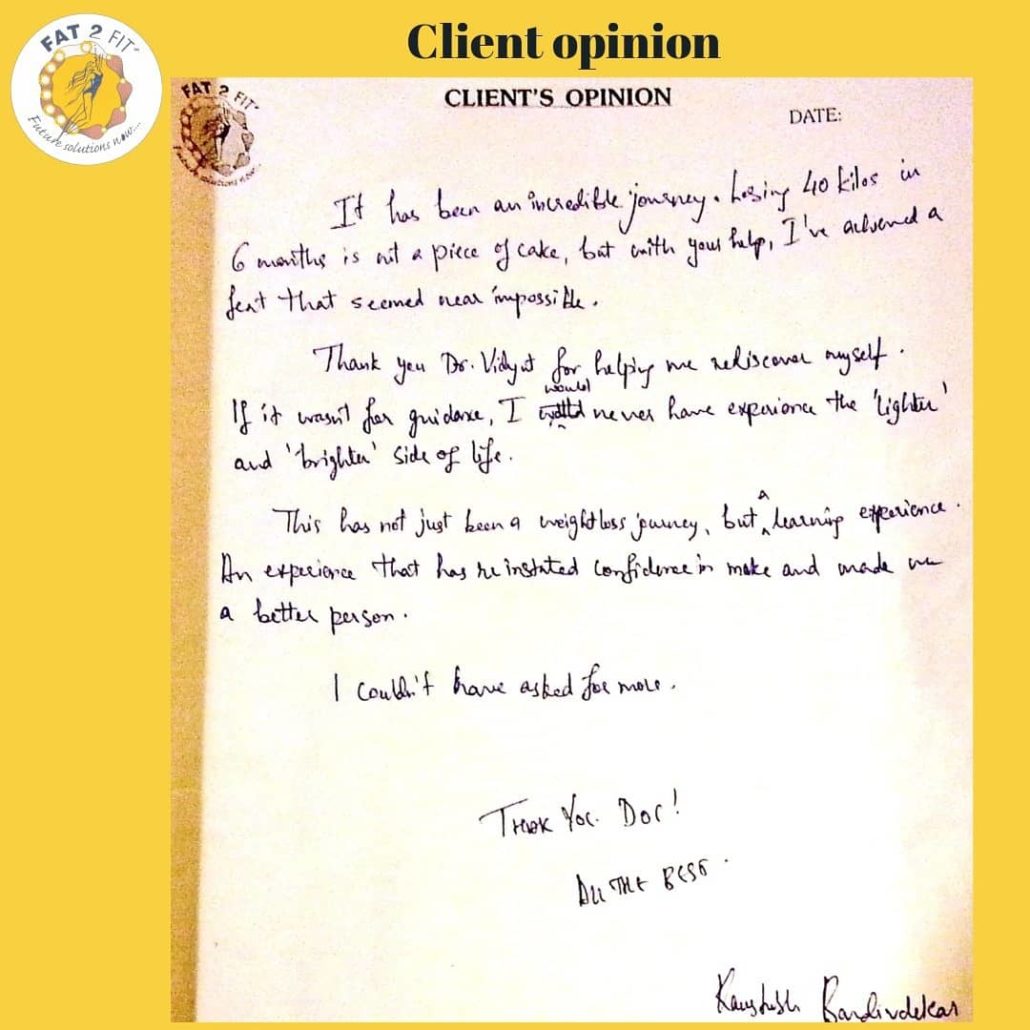 FAT 2 FIT
Future solutions now....
Client opinion
FAT 2 FIT
Future solutions now...
CLIENT'S OPINION
DATE:
It has been an incredible journey. Losing 40 kilos in
6 months is not a piece of cake, but with your help, I've achieved a
feat that seemed near impossible.
Thank you Dr. Vidyut for helping me rediscover myself.
would
If it wasn't for guidance, I never have experience the 'lighter'
and 'brighter' side of life.
This has not just been a weightloss journey, but a learning experience.
An experience that has reinstated confidence in make and made me
a better person.
I couldn't have asked for more.
THANK YOU DOC!
ALL THE BEST.
Kaustubh Bandivdekar